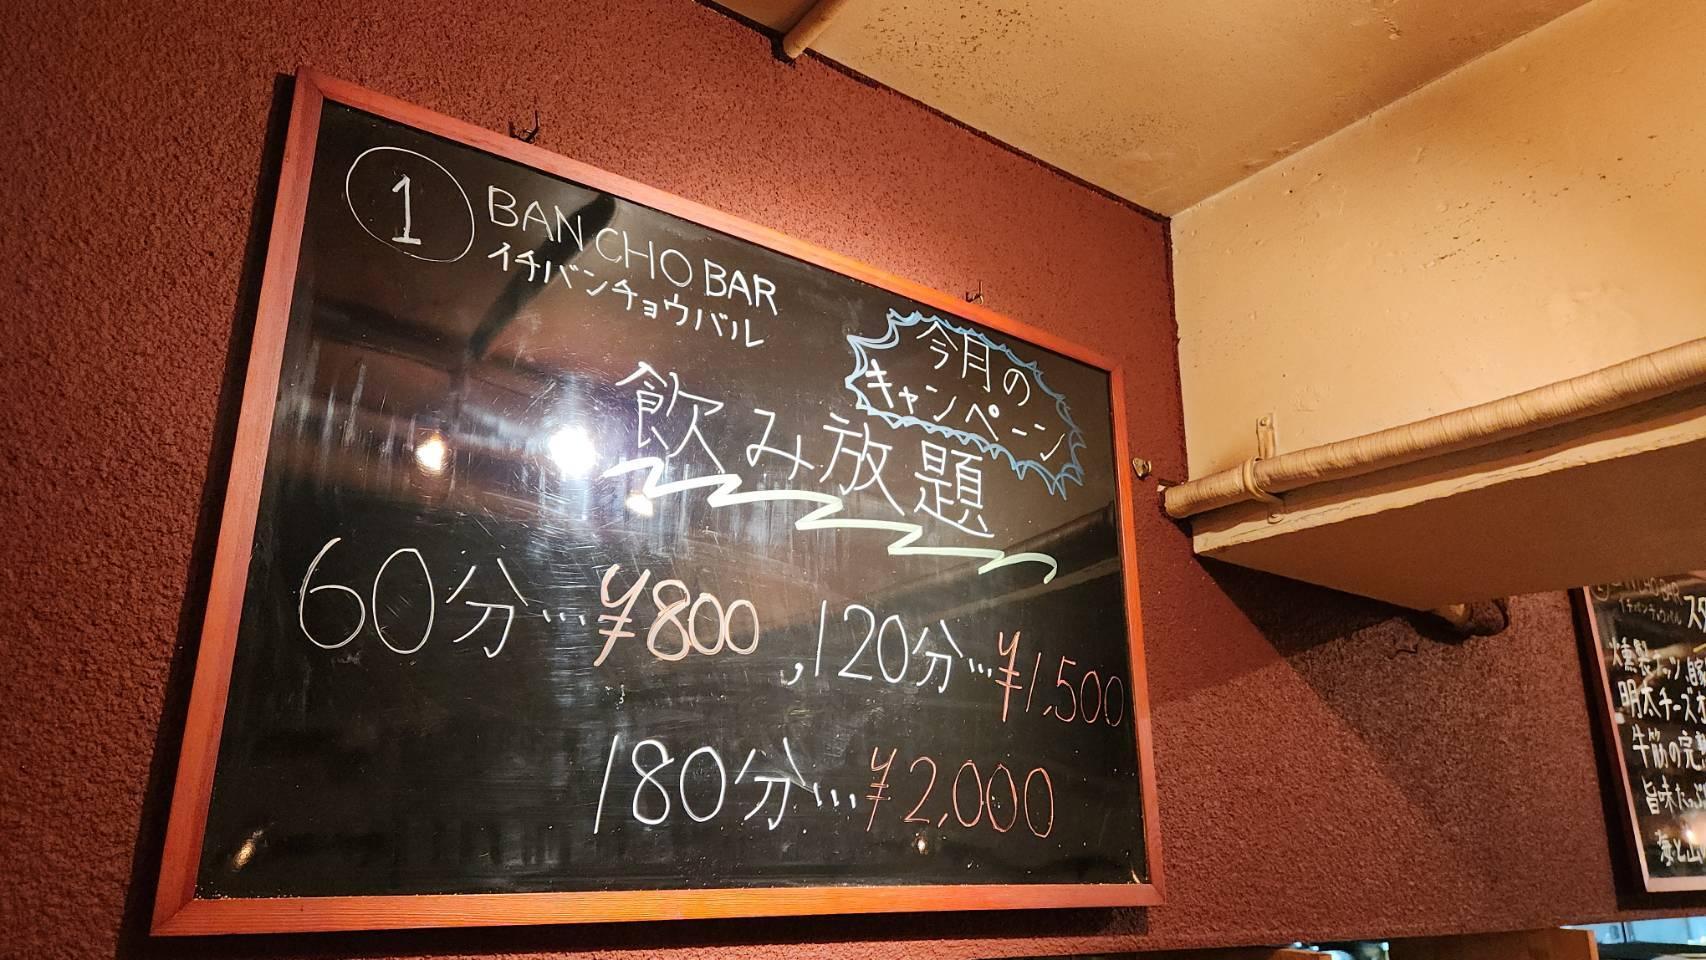 ① BAN CHO BAR
イチバンチョウバル
今月の
キャンペーン
飲み放題
60分…¥800 , 120分…¥1,500
180分…¥2,000
CHO BAR
イチバンチョウバル
燻製ナッツ
明太チーズ
牛筋の完熟
旨味たっぷ
海と山